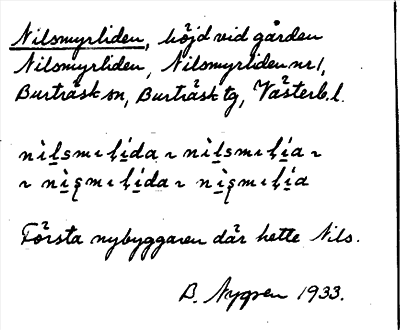 Nilsmyrliden, höjd vid gården
Nilsmyrliden, Nilsmyrliden nr 1,
Burträsk sn, Burträsk tg, Västerb. l.
Första nybyggaren där hette Nils.
B. Nygren 1933.